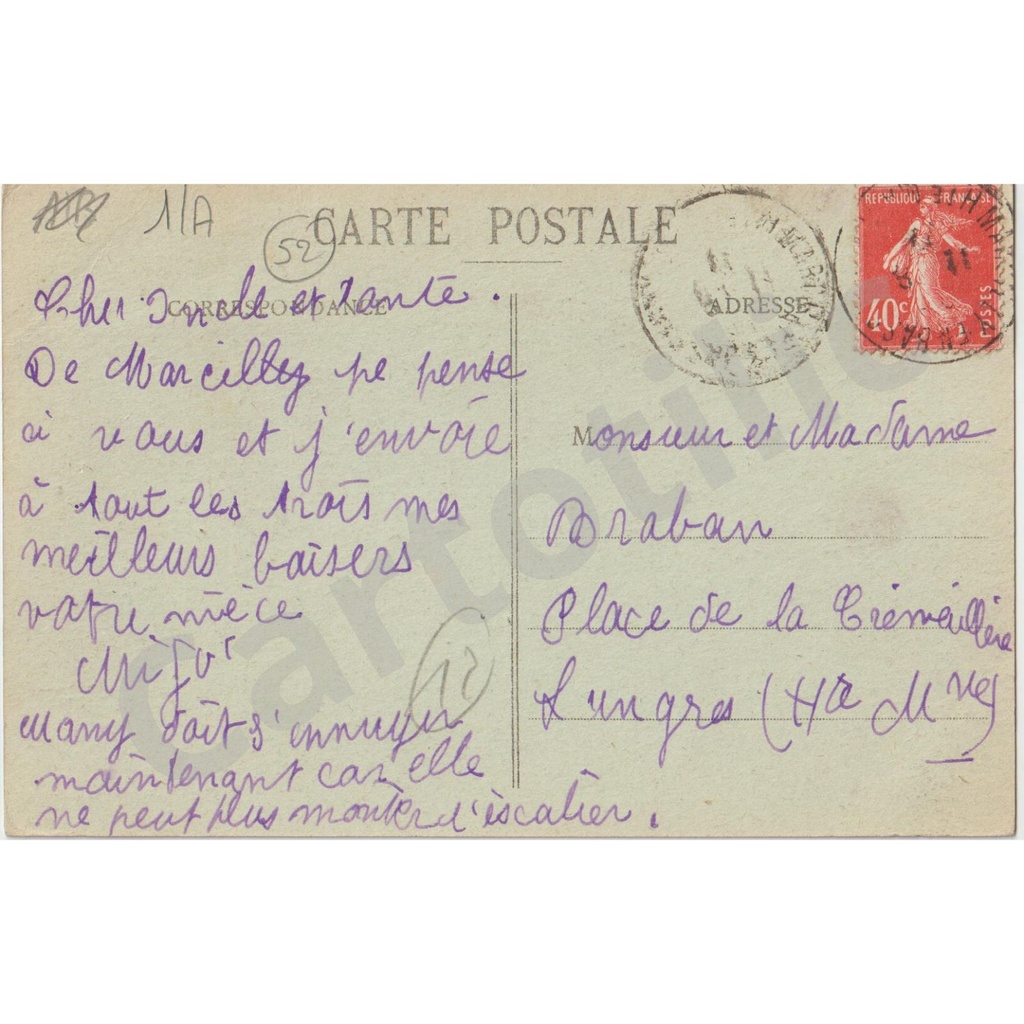 1/A
52
CARTE POSTALE
CORRESPONDANCE
ADRESSE
REPUBLIQUE FRANÇAISE
40c
POSTES
Cher Oncle et tante.
De Marcilly je pense
à vous et j'envoie
à tout les trois mes
meilleurs baisers
votre nièce
many doit s'ennuyer
maintenant car elle
ne peut plus monter l'escalier.
12
Monsieur et Madame
Braban
Place de la Crémaillère
Langres (Hte Mne)
Cartotilt